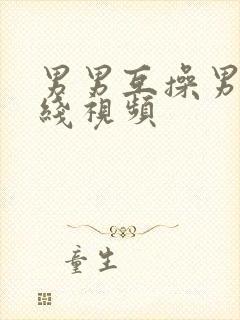 男男互操男
綫視頻
童生